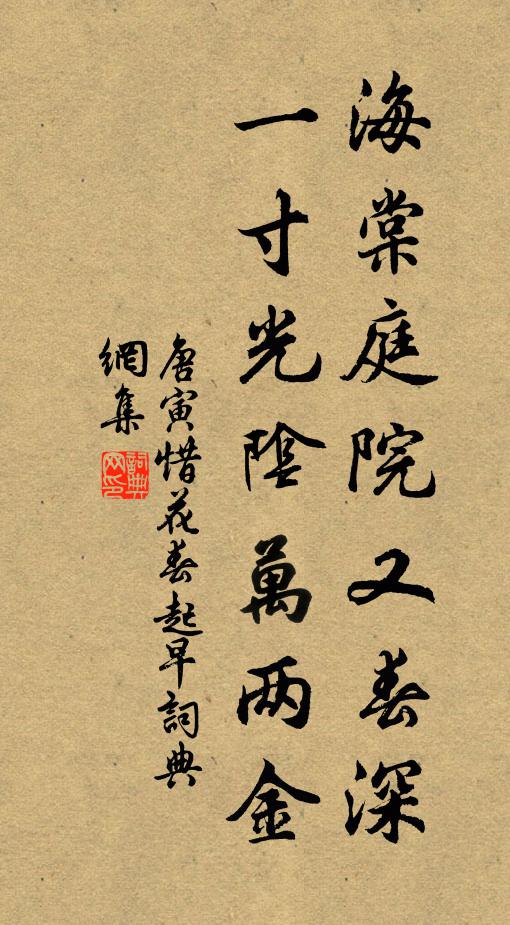 海棠庭院又春深
一寸光陰萬两金
唐寅惜花春起早詞典
網集
詞典網印